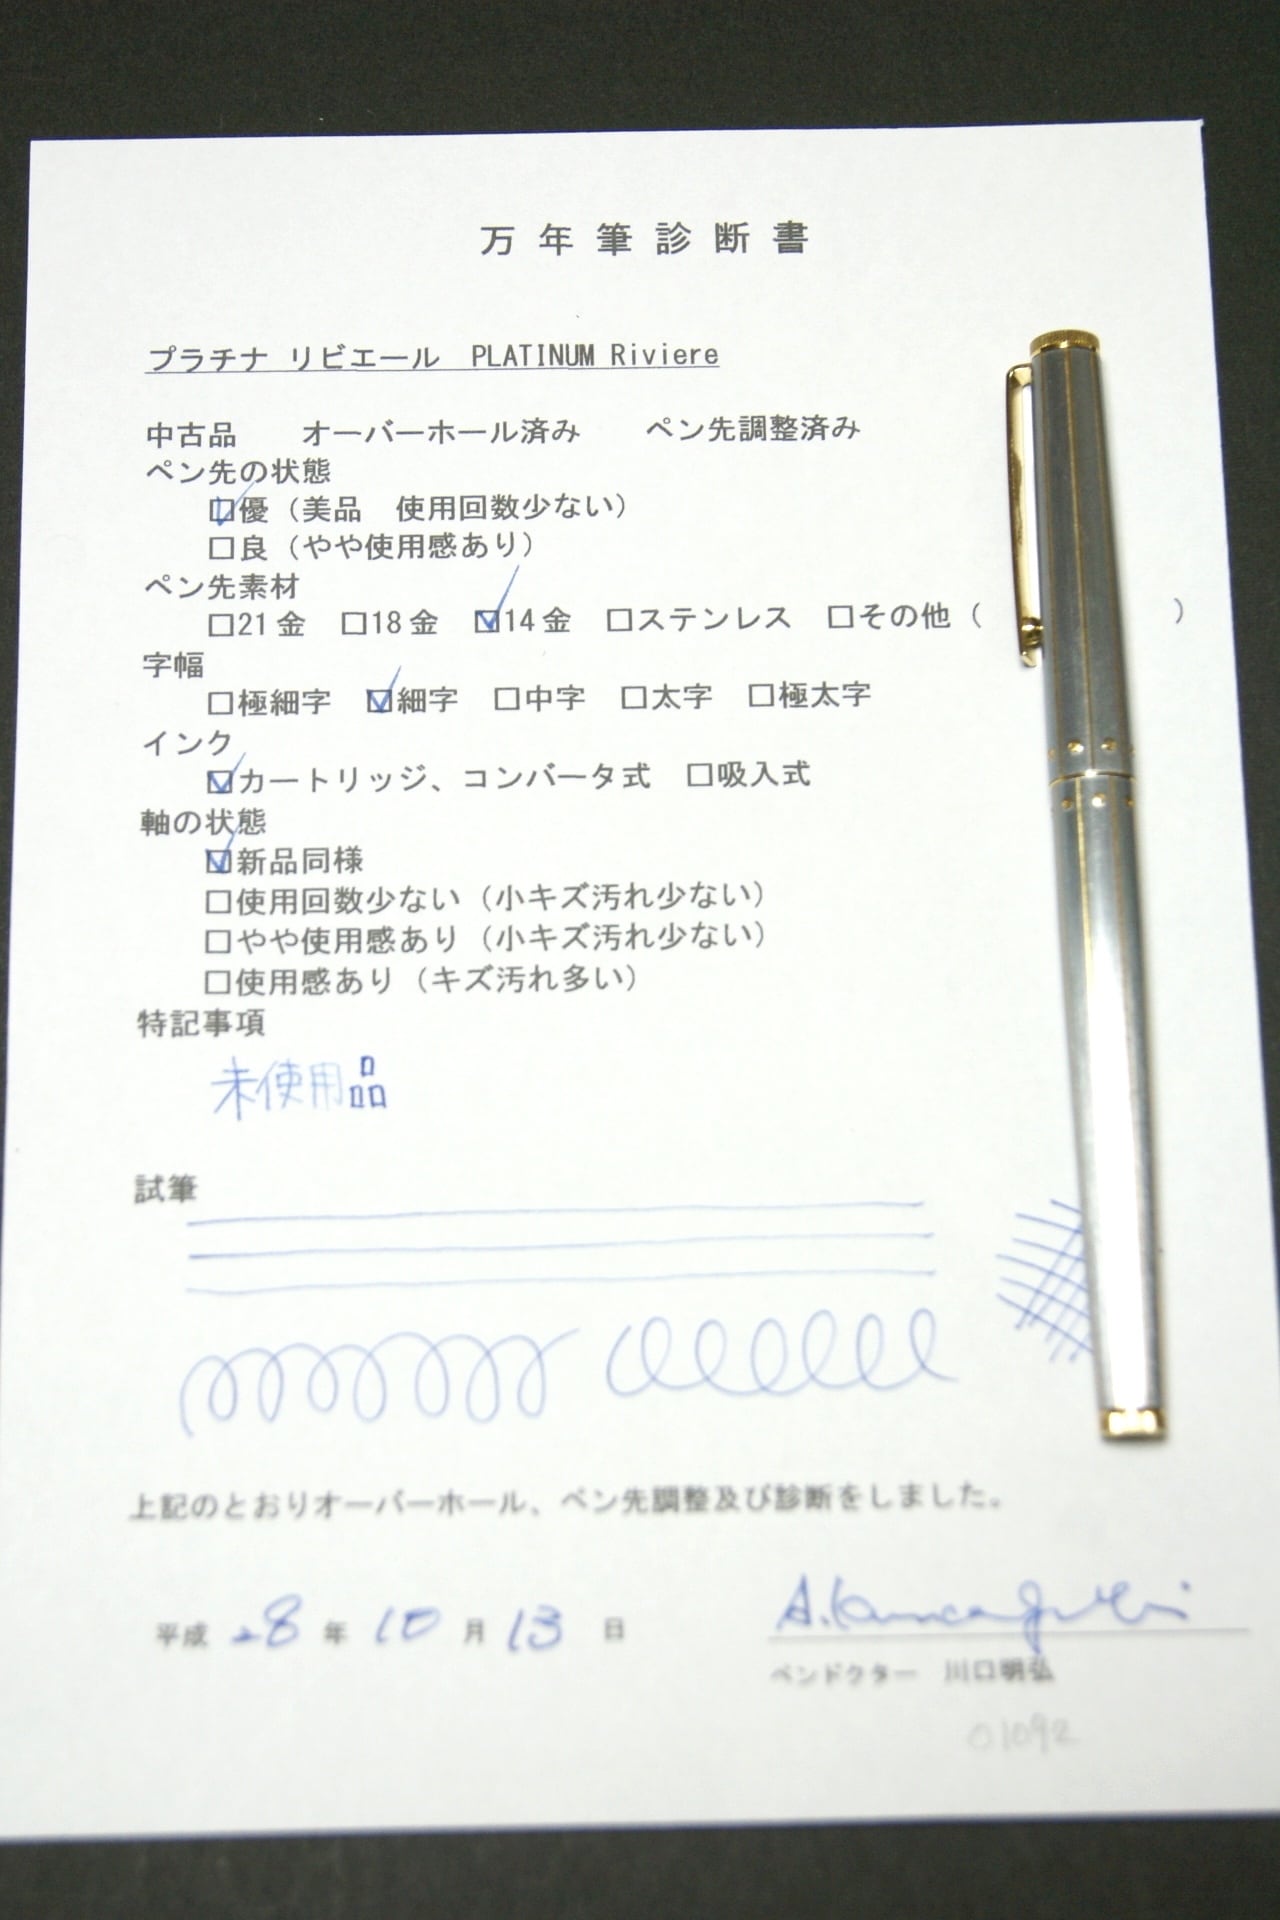 万年筆診断書
プラチナ リビエール PLATINUM Riviere
中古品 オーバーホール済み ペン先調整済み
ペン先の状態
☑優（美品 使用回数少ない）
□良（やや使用感あり）
ペン先素材
□21金 □18金 ☑14金 □ステンレス □その他（ ）
字幅
□極細字 ☑細字 □中字 □太字 □極太字
インク
☑カートリッジ、コンバータ式 □吸入式
軸の状態
☑新品同様
□使用回数少ない（小キズ汚れ少ない）
□やや使用感あり（小キズ汚れ少ない）
□使用感あり（キズ汚れ多い）
特記事項
未使用品
試筆
上記のとおりオーバーホール、ペン先調整及び診断をしました。
平成 28 年 10 月 13 日 A.Kawaguchi
ペンドクター 川口明弘
01092